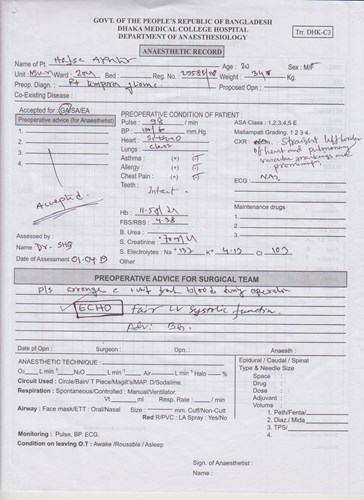 GOVT. OF THE PEOPLE'S REPUBLIC OF BANGLADESH
DHAKA MEDICAL COLLEGE HOSPITAL
DEPARTMENT OF ANAESTHESIOLOGY
Trr. DHK-C3
ANAESTHETIC RECORD
Name of Pt. Age : 20 Sex : M/F
Unit Ward : 204 Bed : Reg. No. Weight : Kg.
Preop. Diagn. : Pt Proposed Opn :
Co-Existing Disease :
Accepted for : GA/SA/EA
Preoperative advice (for Anaesthetist)
1.
2.
3.
4.
Accepted
Assessed by :
Name : Dr.
Date of Assessment 01.04.13
PREOPERATIVE CONDITION OF PATIENT
Pulse : 98 / min
BP : mm.Hg.
Heart :
Lungs : clear
Asthma : (+)
Allergy : (+)
Chest Pain : (+)
Teeth : Intact.
Hb :
FBS/RBS : 4.38
B. Urea :
S. Creatinine :
S. Electrolytes : Na+ 132 K+ 4.13 Cl 103
Other
ASA Class : 1,2,3,4,5 E
Mallampati Grading. 1 2 3 4.
CXR : Straight left border
of heart and pulmonary
vascular markings are
prominent.
ECG : NAD
Maintenance drugs
1.
2.
3.
PREOPERATIVE ADVICE FOR SURGICAL TEAM
Pls arrange unit fresh blood during operation
ECHO Fair LV systolic function.
Adv:
Date of Opn : Surgeon : Opn. : Anaesth :
ANAESTHETIC TECHNIQUE :
O2 L min-1 N2O L min-1 Air L min-1 Halo %
Circuit Used : Circle/Bain/ T Piece/Magill's/MAP. D/Sodalime.
Respiration : Spontaneous/Controlled : Manual/Ventilator.
Vt ml Resp. Rate / min
Airway : Face mask/ETT : Oral/Nasal Size mm. Cuff/Non-Cutt
Red R/PVC : LA Spray : Yes/No
Monitoring : Pulse, BP. ECG.
Condition on leaving O.T : Awake /Rousable / Asleep
Epidural / Caudal / Spinal
Type & Needle Size
Space :
Drug :
Dose :
Adjuvant :
Volume :
1. Peth/Fenta/
2. Diaz./ Mida
3. TPS/
4.
Sign. of Anaesthetist :
Name :